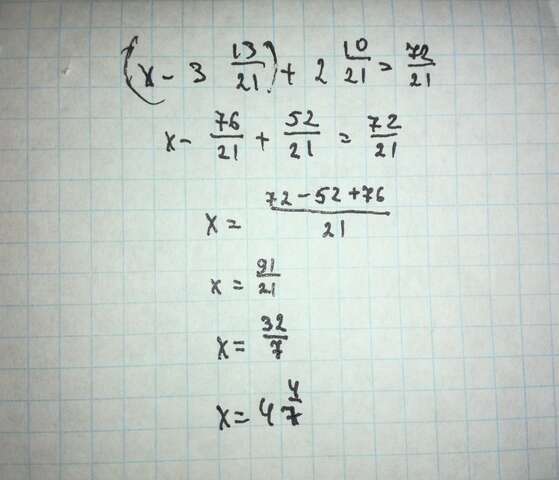 (x - 3 13/21) + 2 10/21 = 72/21
x - 76/21 + 52/21 = 72/21
x = (72 - 52 + 76)/21
x = 91/21
x = 32/7
x = 4 4/7